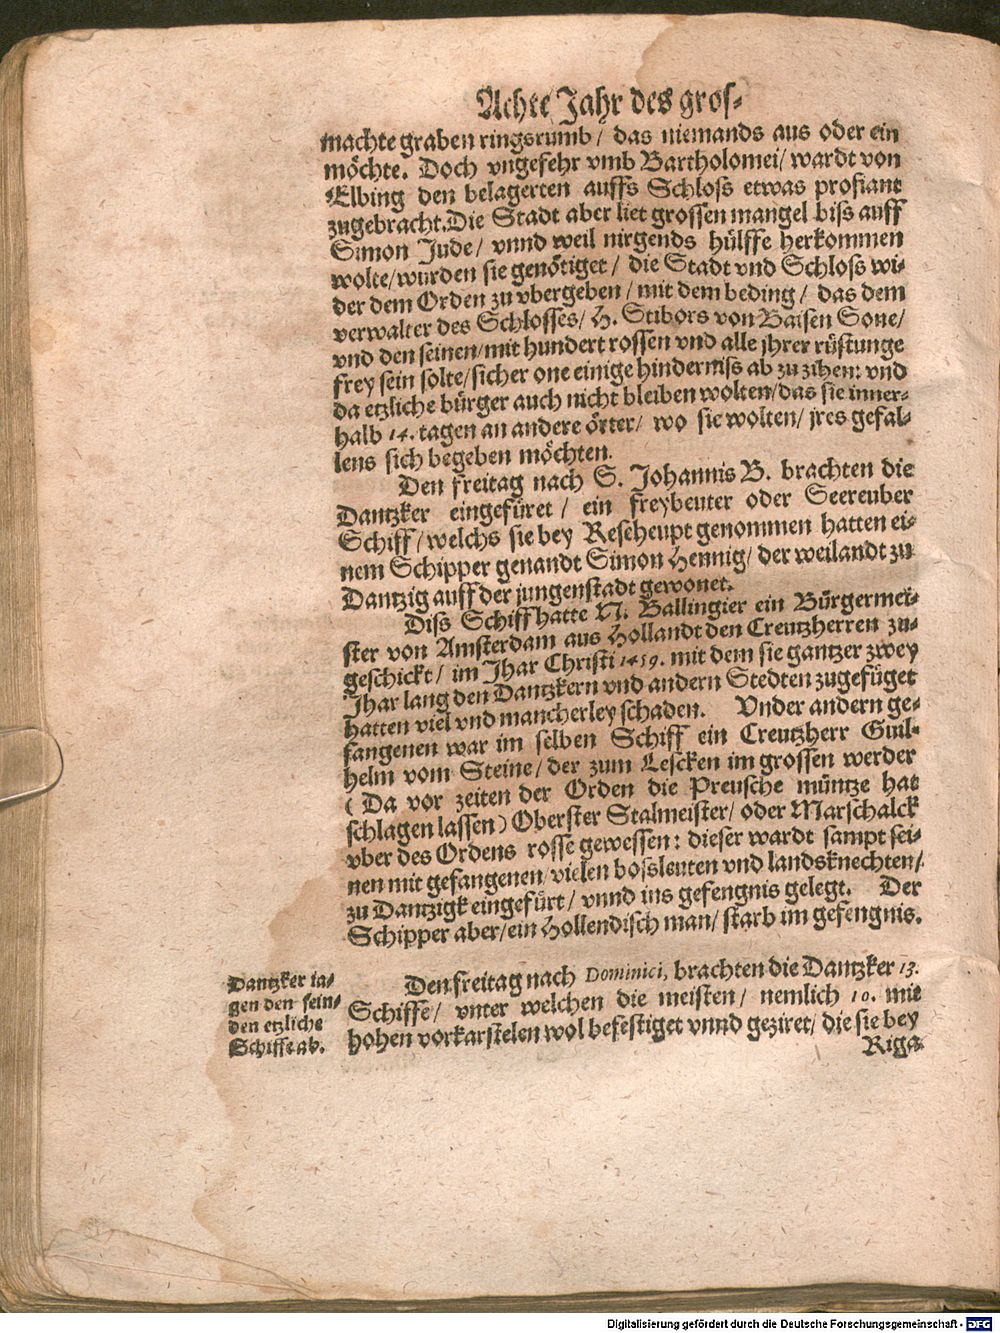 Achte Jahr des gros-
machte graben ringsrumb/ das niemands aus oder ein
möchte. Doch vngefehr vmb Bartholomei/ wardt von
Elbing den belagerten auffs Schloss etwas profiant
zugebracht. Die Stadt aber liet grossen mangel biss auff
Simon Jude/ vnnd weil nirgends hülffe herkommen
wolte/ wurden sie genötiget/ die Stadt vnd Schloss wi-
der dem Orden zu vbergeben/ mit dem beding/ das dem
verwalter des Schlosses/ H. Stibors von Baisen Sone/
vnd den seinen/ mit hundert rossen vnd alle jhrer rüstunge
frey sein solte/ sicher one einige hinderniss ab zu zihen: vnd
da etzliche bürger auch nicht bleiben wolten/ das sie inner-
halb 14. tagen an andere örter/ wo sie wolten/ jres gefal-
lens sich begeben möchten.
Den freitag nach S. Johannis B. brachten die
Dantzker eingefüret/ ein freybeuter oder Seereuber
Schiff/ welchs sie bey Reseheupt genommen hatten ei-
nem Schipper genandt Simon Hennig/ der weilandt zu
Dantzig auff der jungenstadt gewonet.
Diss Schiff hatte N. Ballingier ein Bürgermei-
ster von Amsterdam aus Hollandt den Creutzherren zu-
geschickt/ im Jhar Christi 1459. mit dem sie gantzer zwey
Jhar lang den Dantzkern vnd andern Stedten zugefüget
hatten viel vnd mancherley schaden. Vnder andern ge-
fangenen war im selben Schiff ein Creutzherr Guil-
helm vom Steine/ der zum Lescken im grossen werder
(Da vor zeiten der Orden die Preusche müntze hat
schlagen lassen) Oberster Stalmeister/ oder Marschalck
vber des Ordens rosse gewessen: dieser wardt sampt sei-
nen mit gefangenen/ vielen bossleuten vnd landsknechten/
zu Dantzigk eingefürt/ vnnd ins gefengnis gelegt. Der
Schipper aber/ ein Hollendisch man/ starb im gefengnis.
Dantzker ia-
gen den fein-
den etzliche
Schiffe ab.
Den freitag nach Dominici, brachten die Dantzker 13.
Schiffe/ vnter welchen die meisten/ nemlich 10. mit
hohen vorkarstelen wol befestiget vnnd geziret/ die sie bey
Riga
Digitalisierung gefördert durch die Deutsche Forschungsgemeinschaft - DFG